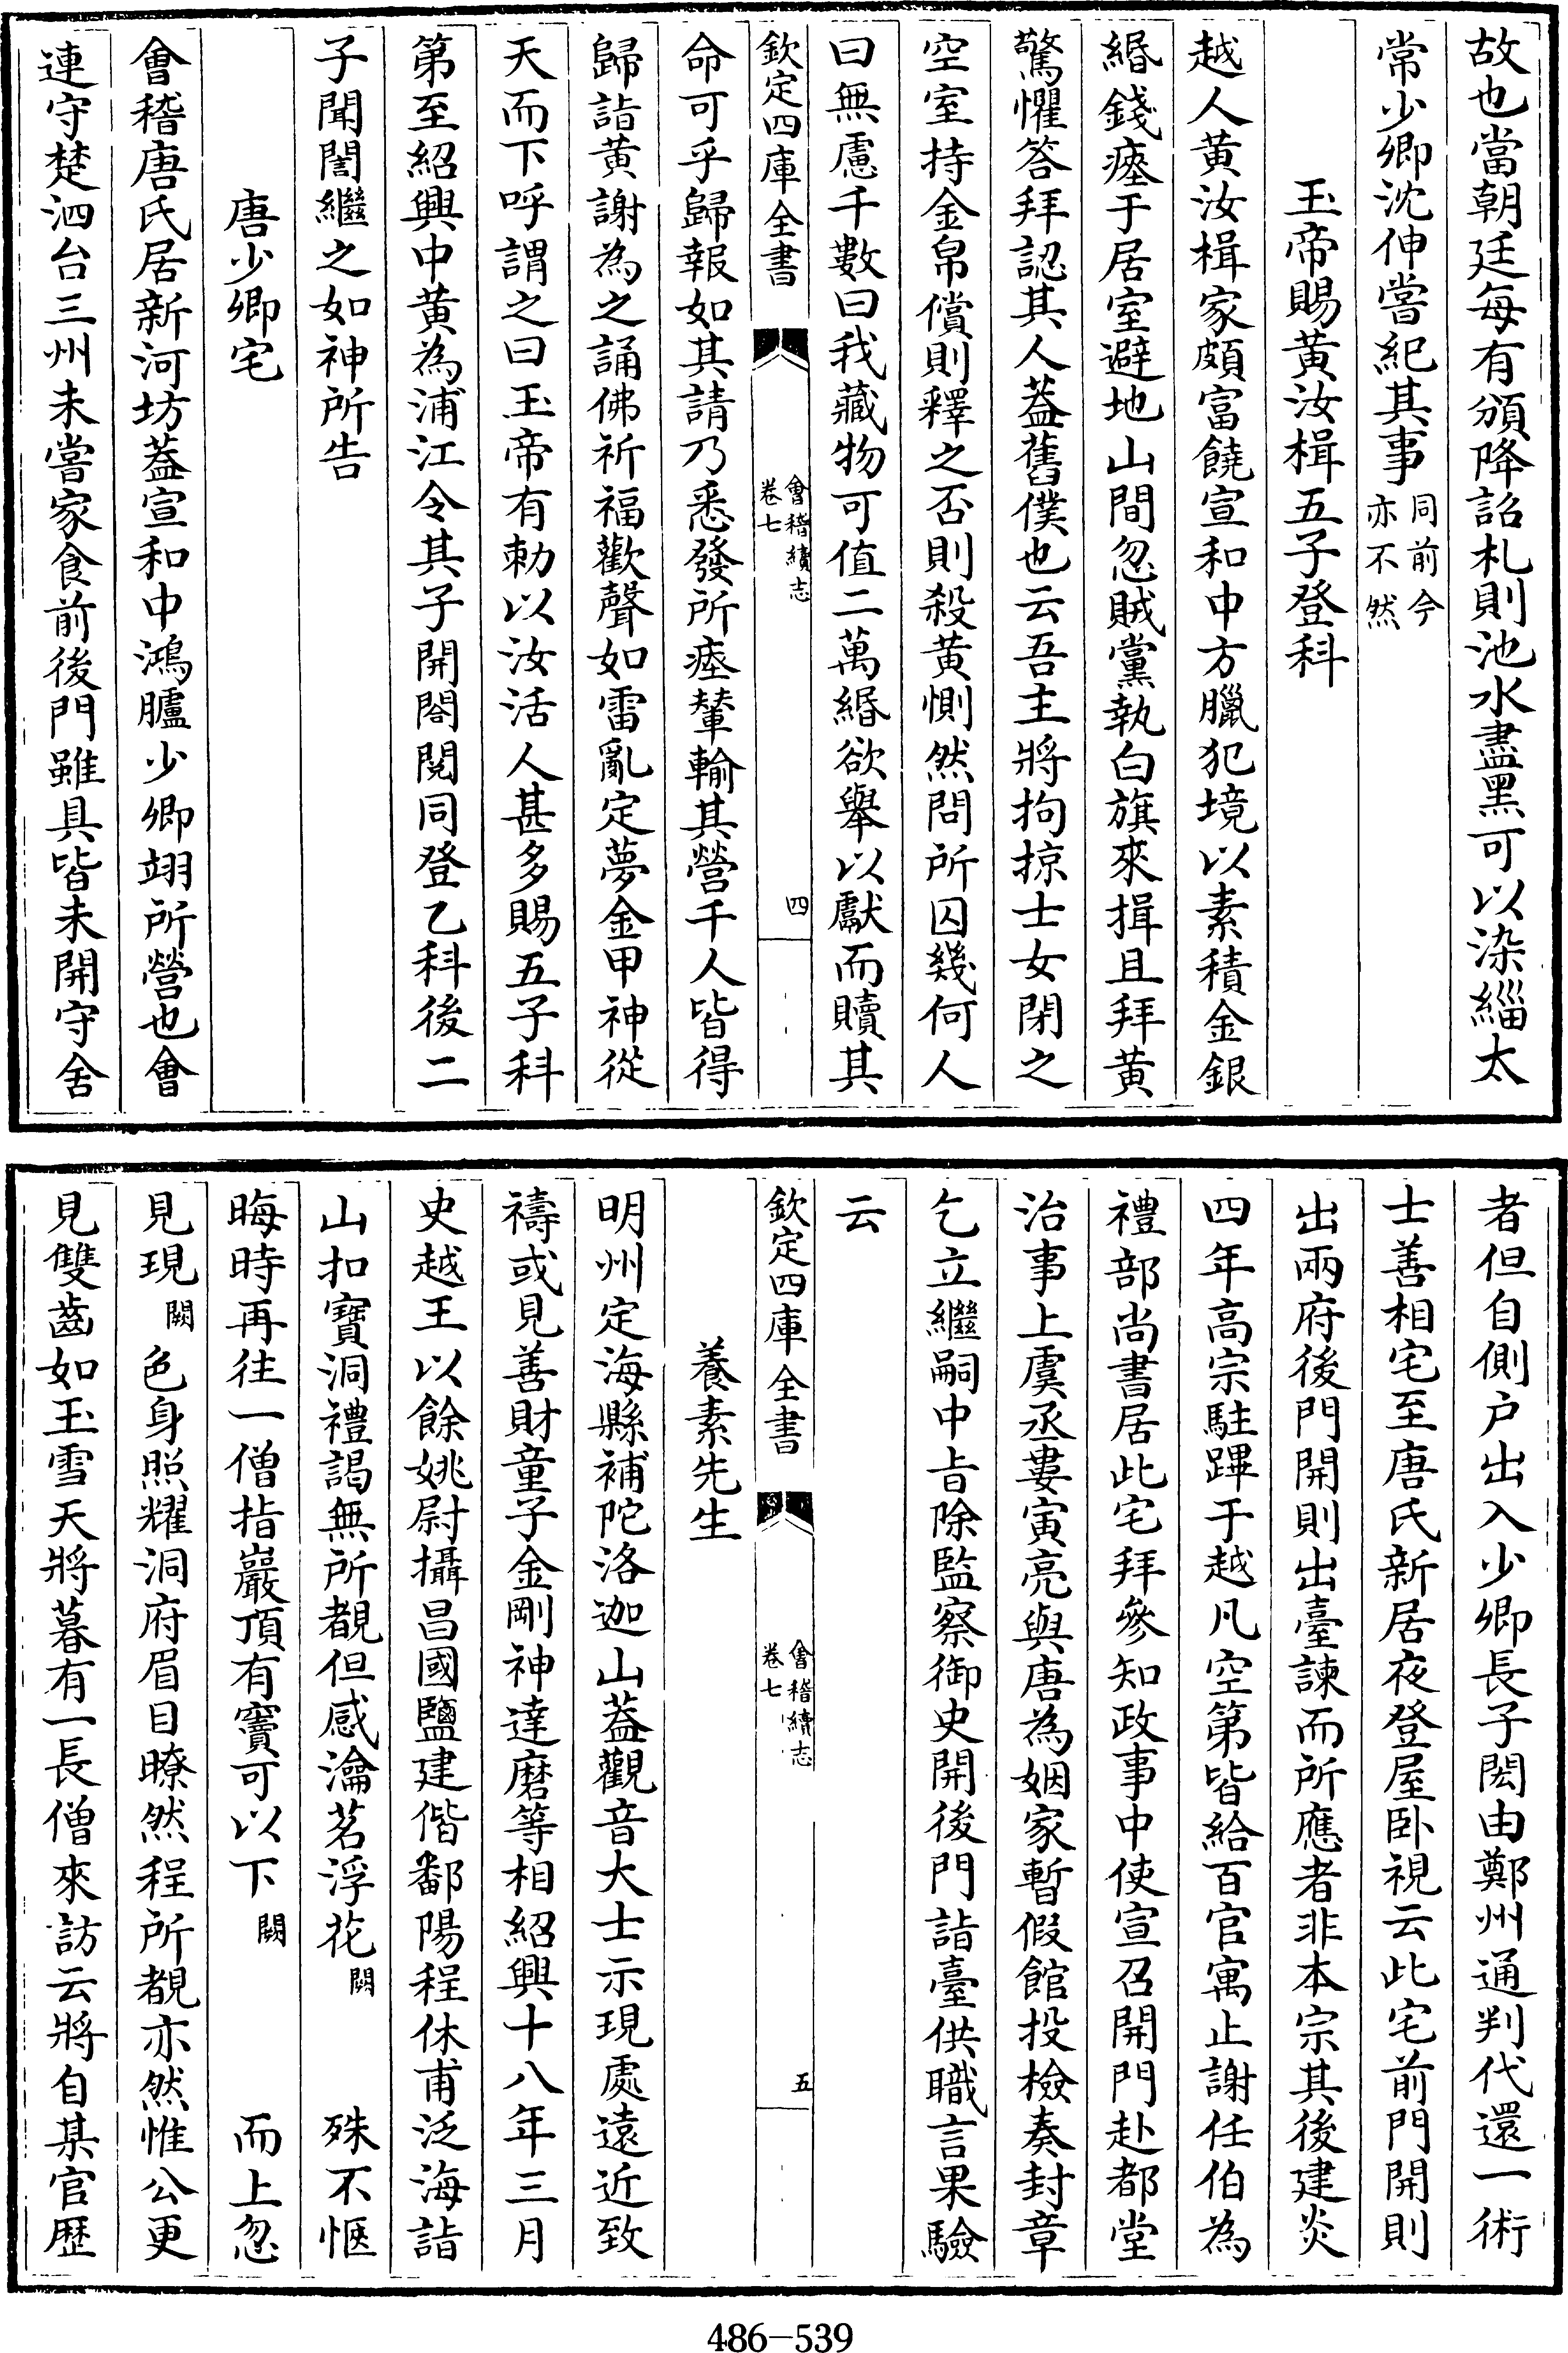 故也當朝廷每有頒降詔札則池水盡黑可以染緇太
常少卿沈伸嘗紀其事同前今亦不然
玉帝賜黃汝楫五子登科
越人黃汝楫家頗富饒宣和中方臘犯境以素積金銀
緡錢瘞于居室避地山間忽賊黨執白旗來揖且拜黃
驚懼答拜認其人葢舊僕也云吾主將拘掠士女閉之
空室持金帛償則釋之否則殺黃惻然問所囚幾何人
曰無慮千數曰我藏物可值二萬緡欲舉以獻而贖其
欽定四庫全書
會稽續志
卷七
四
命可乎歸報如其請乃悉發所瘞輦輸其營千人皆得
歸詣黃謝為之誦佛祈福歡聲如雷亂定夢金甲神從
天而下呼謂之曰玉帝有勅以汝活人甚多賜五子科
第至紹興中黃為浦江令其子開閤閱同登乙科後二
子聞誾繼之如神所告
唐少卿宅
會稽唐氏居新河坊葢宣和中鴻臚少卿翊所營也會
連守楚泗台三州未嘗家食前後門雖具皆未開守舍
者但自側户出入少卿長子閎由鄭州通判代還一術
士善相宅至唐氏新居夜登屋卧視云此宅前門開則
出兩府後門開則出臺諫而所應者非本宗其後建炎
四年高宗駐蹕于越凡空第皆給百官寓止謝任伯為
禮部尚書居此宅拜參知政事中使宣召開門赴都堂
治事上虞丞婁寅亮與唐為姻家暫假館投檢奏封章
乞立繼嗣中㫖除監察御史開後門詣臺供職言果驗
云
欽定四庫全書
會稽續志
卷七
五
養素先生
明州定海縣補陀洛迦山葢觀音大士示現處遠近致
禱或見善財童子金剛神達磨等相紹興十八年三月
史越王以餘姚尉攝昌國鹽建偕鄱陽程休甫泛海詣
山扣寶洞禮謁無所覩但感瀹茗浮花闕殊不愜
晦時再往一僧指巖頂有竇可以下闕而上忽
見現闕色身照耀洞府眉目瞭然程所覩亦然惟公更
見雙齒如玉雪天將暮有一長僧來訪云將自某官歷
486-539